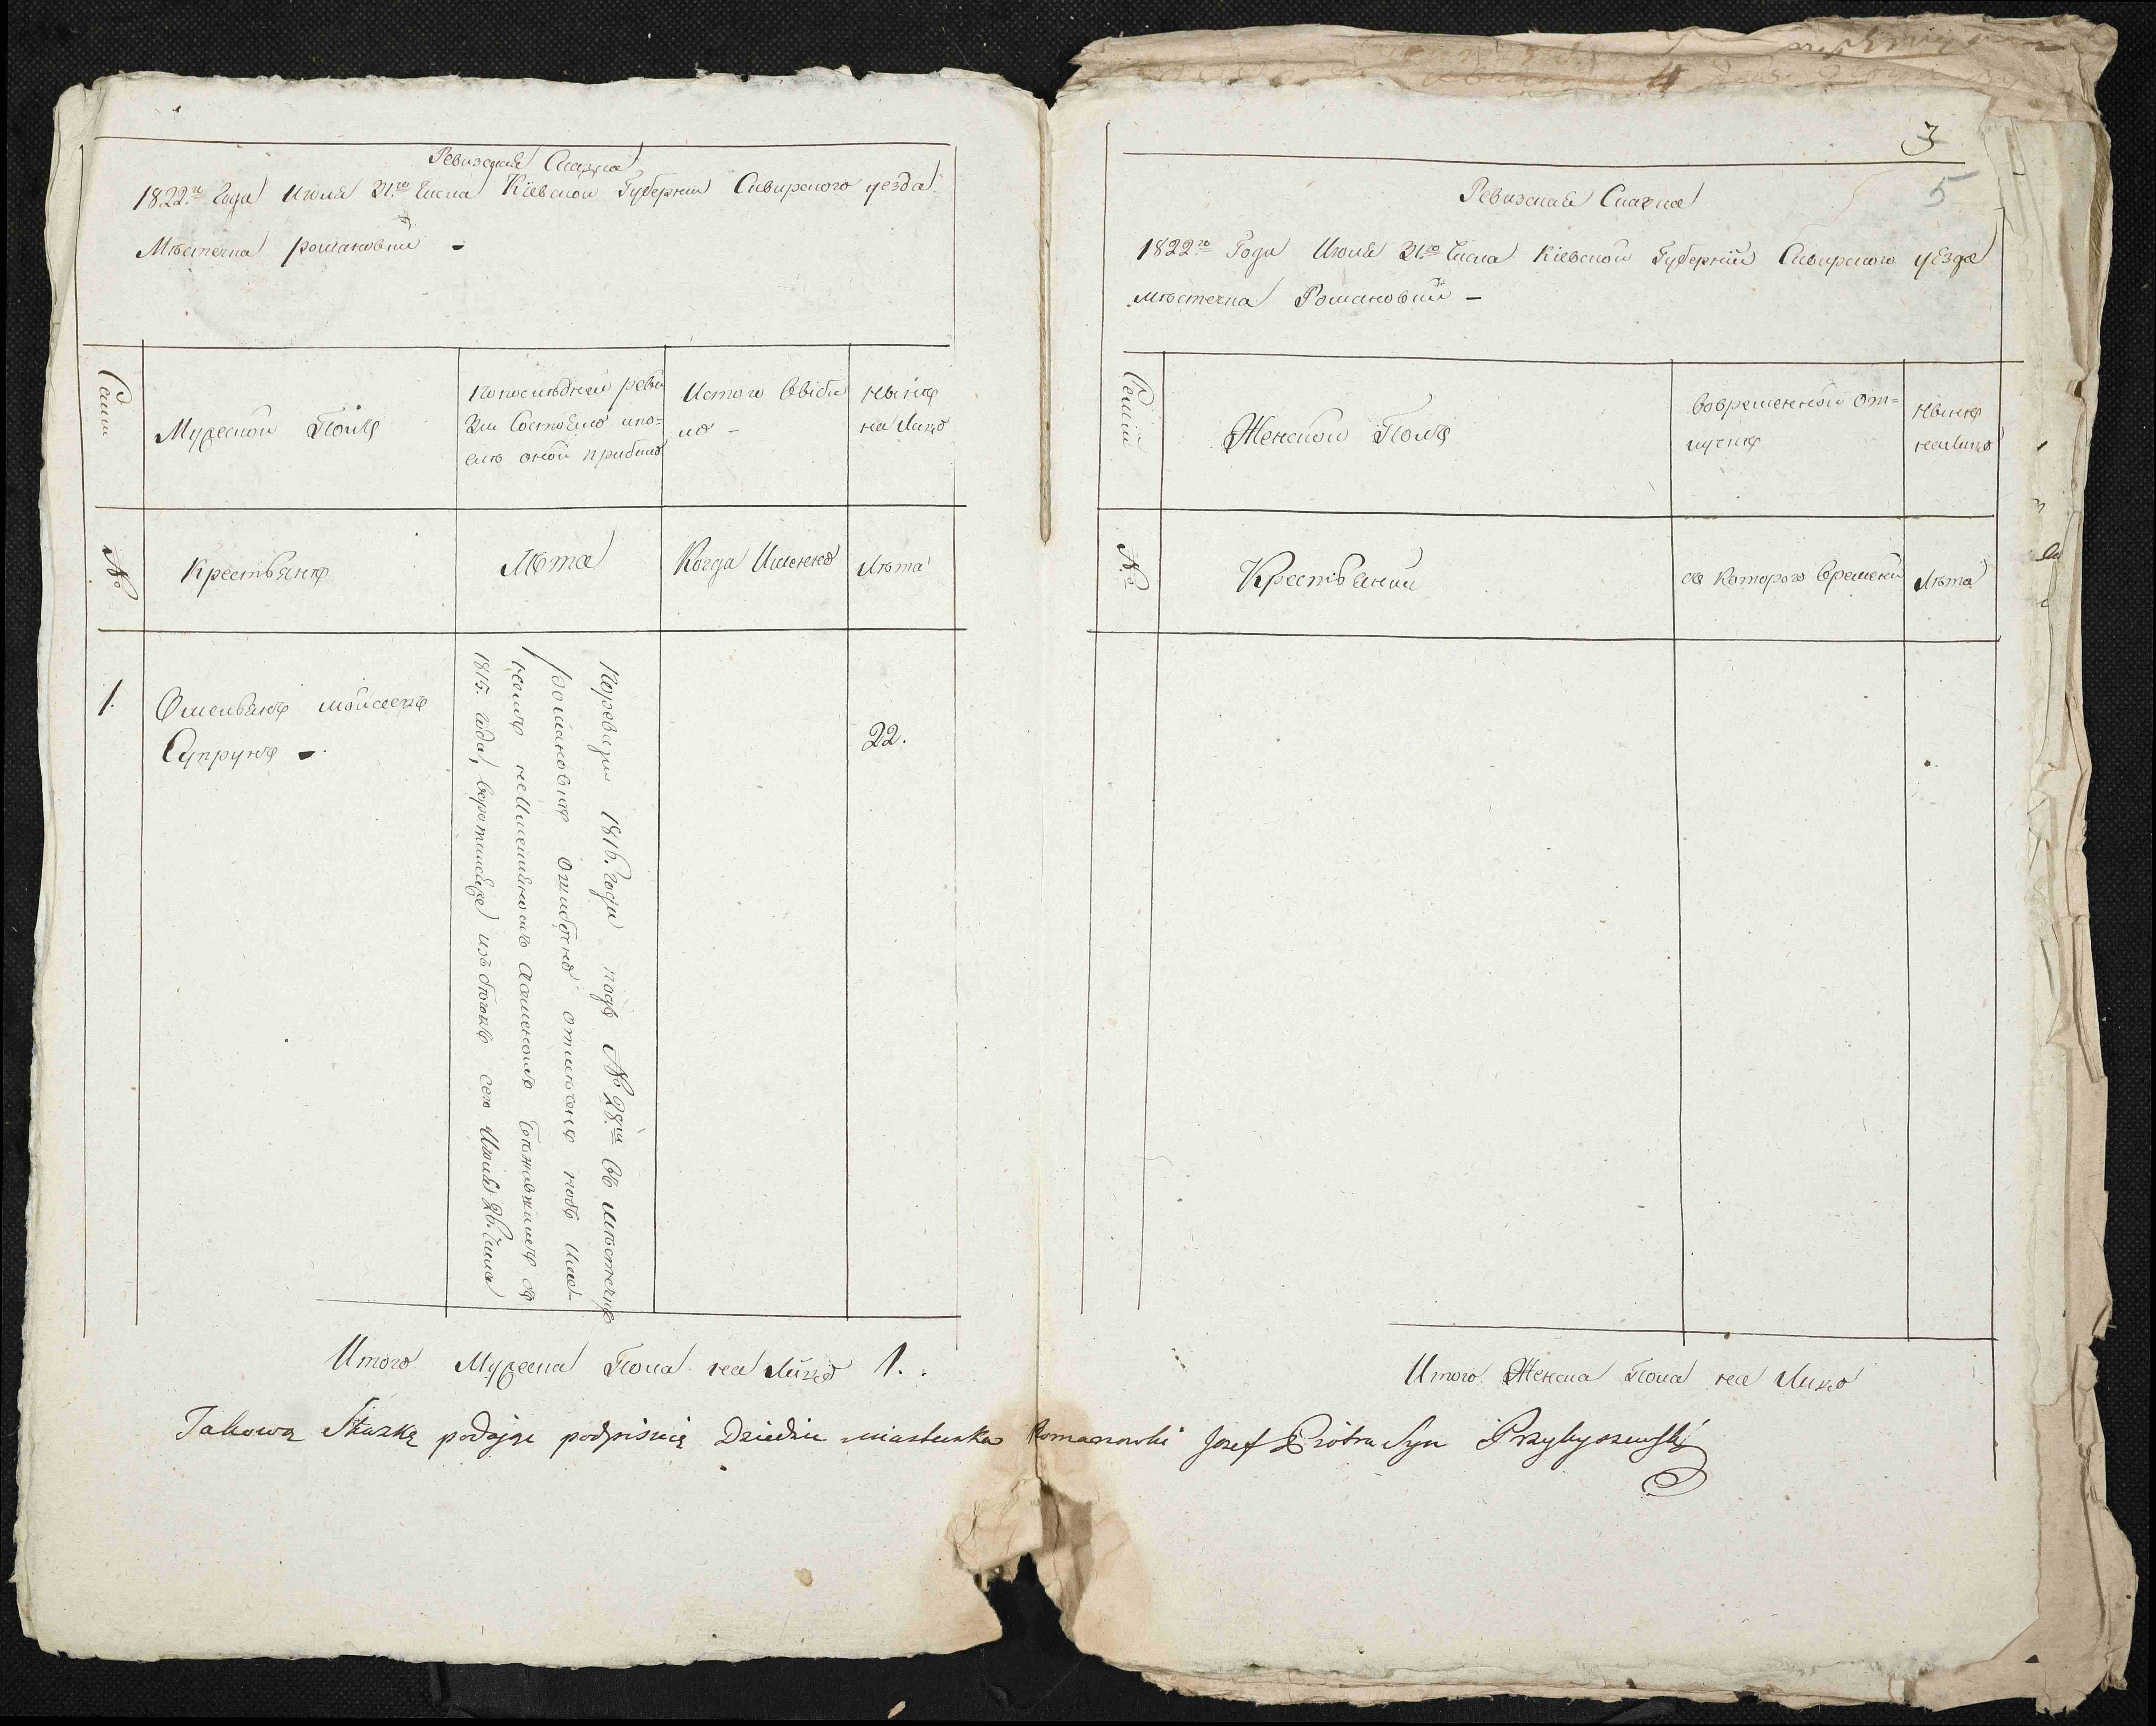 Ревизская Сказка
1822.го Года Июля 31.го Числа Кіевской Губерніи Сквирского уезда
Мѣстечка романовки –
Семьи
Мужеской Полъ
по последней реви
зіи Состояло ипо=
слѣ оной прибыло
Истого Выбы
ло –
нынѣ
на Лицо
№
Крестьянъ
Лѣта
Когда Именно
Лѣта
1.
Омельянъ мойсеевъ
Супрунъ –
1815. года, воротился изъ бѣговъ сего Июля 26. Числа
Поревизіи 1816. года подъ № 28.мъ въ мѣстечкѣ
романовкѣ Ошибкою
22.
Итого Мужеска Пола на Лицо 1.
3
5
Ревизская Сказка
1822го Года Июля 31.го Числа Кіевской Губерніи Сквирского уезда
мѣстечка Романовки –
Семьи
Женской Полъ
вовременной от=
лучкѣ
нынѣ
налицо
№
Крестьянки
съ Которого времени
Лѣта
Итого Женска Пола на Лицо
Takową Skazkę podając podpisuię Dziedzic miasteczka Romanowki Jozef Piotra Syn Przybyszewski